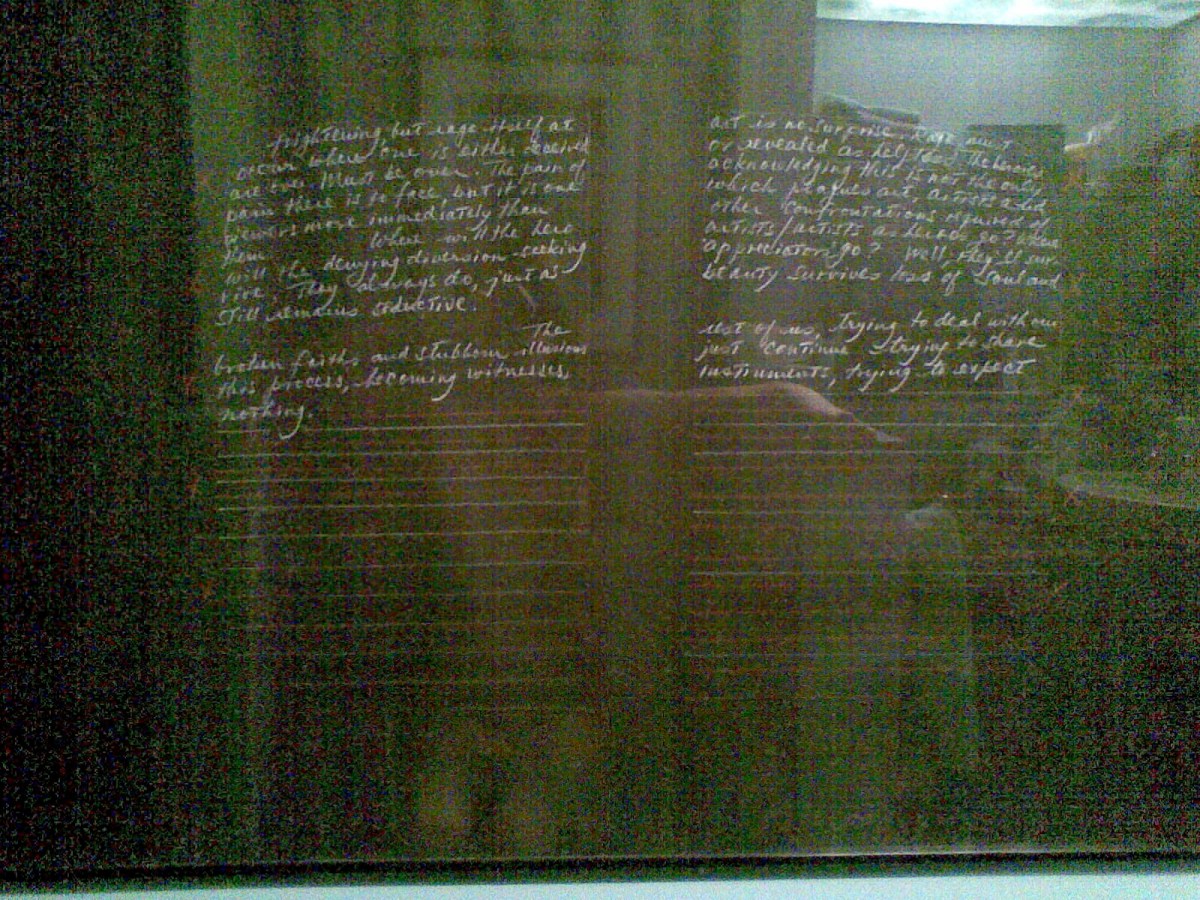 frightening but rage itself at
occur where one is either
are over. Must be over. The pain of
pain there is to face, but it is one
viewers more immediately than
them. Where will the hero
will the denying diversion-seeking
vive. They always do, just as
still remains seductive.
The
broken faiths and stubborn illusions
this process, becoming witnesses,
nothing.
art is no surprise.
or revealed as helpless. The heroes
acknowledging this is not the only
which plagues art, artists and
other confrontations required of
artists/artists as heroes go? Where
appreciators go? Well, they'll sur-
beauty survives loss of soul and
rest of us, trying to deal with our
just continue trying to share
instruments, trying to expect